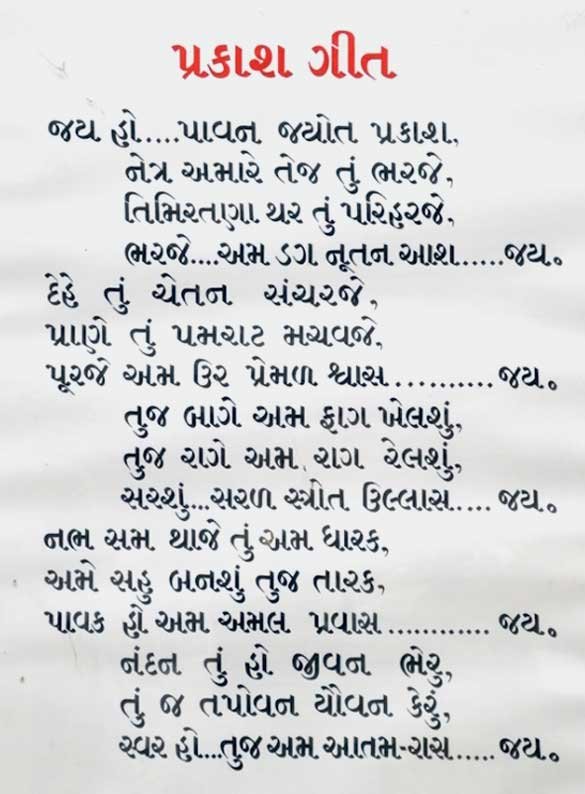 પ્રકાશ ગીત
જય હો....પાવન જ્યોત પ્રકાશ,
નેત્ર અમારે તેજ તું ભરજે,
તિમિરતણા થર તું પરિહરજે,
ભરજે....અમ ડગ નૂતન આશ......જય.
દેહે તું ચેતન સંચરજે,
પ્રાણે તું પમરાટ મચવજે,
પૂરજે અમ ઉર પ્રેમળ શ્વાસ...........જય.
તુજ બાગે અમ ફાગ ખેલશું,
તુજ રાગે અમ રાગ રેલશું,
સરશું...સરળ સ્ત્રોત ઉલ્લાસ.....જય.
નભ સમ થાજે તું અમ ધારક,
અમે સહુ બનશું તુજ તારક,
પાવક હો અમ અમલ પ્રવાસ............જય.
નંદન તું હો જીવન ભેરુ,
તું જ તપોવન યૌવન કેરું,
સ્વર હો...તુજ અમ આતમ-રાસ.....જય.